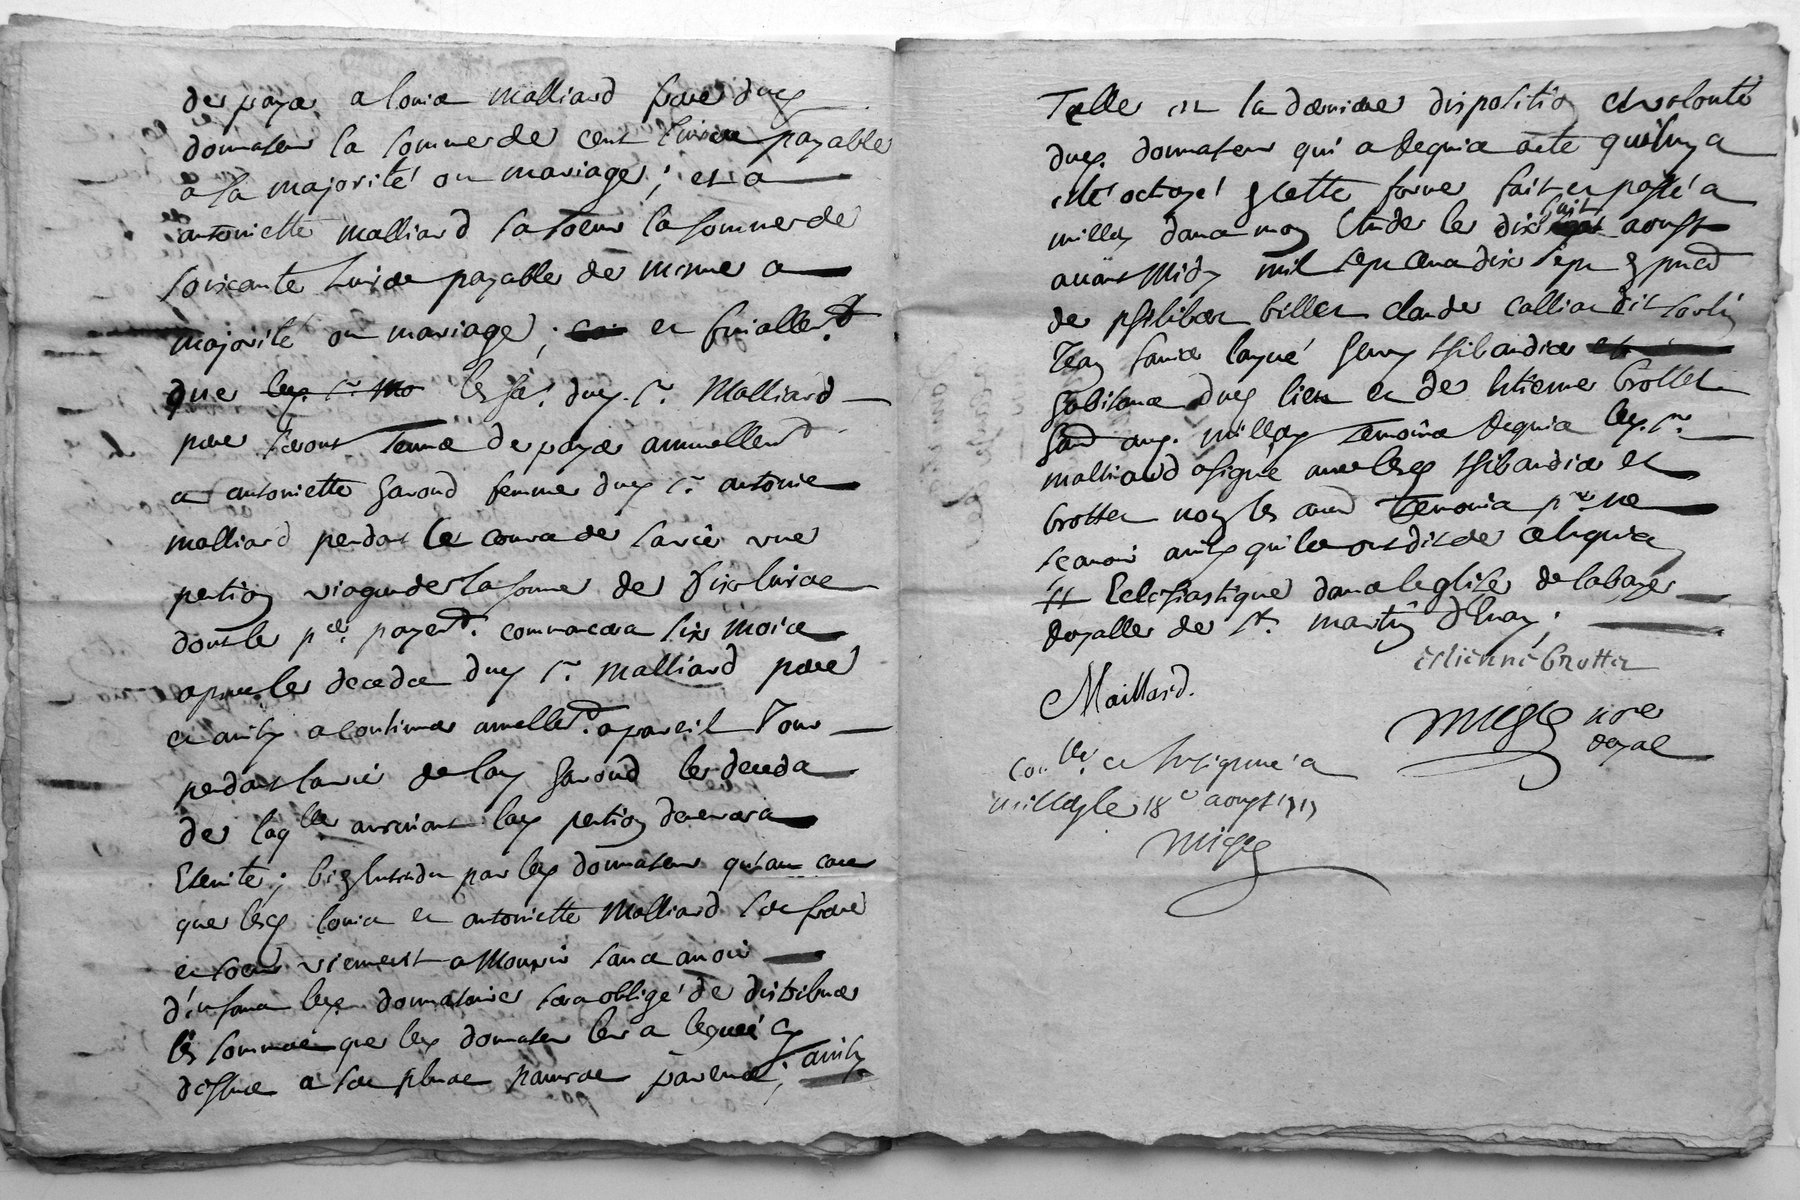 de payer a louis Malliard frere dud.
donnateur la somme de cent livres payable
a sa majorité ou mariage ; et a
antoinette malliard sa soeur la somme de
soixante livres payable de mesme a
majorité ou mariage ; et finallemt.
que les hers. dud. sr. Malliard
pere seront tenus de payer annuellemt.
a antoinette Garond femme dud. sr. antoine
malliard pendant le cours de sa vie une
pention viagere de la somme de six livres
dont le per. payemt. commancera six mois
apres le deceds dud. sr. Malliard pere
et ainsy a continuer annuellemt. a pareil Jour
pendant la vie de lad. Garond le deceds
de laqlle arrivant lad. pention demeurera
Eteinte ; bien entendu par led. donnateur qu'au cas
que lesd. louis et antoinette Malliard ses frere
et soeur viennent a Mourir sans avoir
d'enfans led. donnataire sera obligé de distribuer
les sommes que led. donnateur leur a legués cy
dessus a ses plus pauvres parens ; ainsy
Telle est la derniere disposition et volonté
dud. donnateur qui a requis acte qui luy a
eté octroyé en cette forme fait et passé a
millery dans mon Etude le dix huit aoust
avant Midy mil sept cens dix sept en pnce
de philibert billet claude calliat dit
Jean layné henry thibaudier
habitans dud. lieu et de Etienne brottet
aud. millery temoins requis led. sr.
malliard a signé avec lesd. thibaudier et
brottet non les autres temoins pour ne
scavoir ainsy qu'ils ont dit de ce enquis
Eclesiastique dans leglise de labaye
Royalle de St. martin d'Enay ;
estienne brottet
Maillard.
nore
Royal
Conllé. et Insignué a
millery le 18e aoust 1717